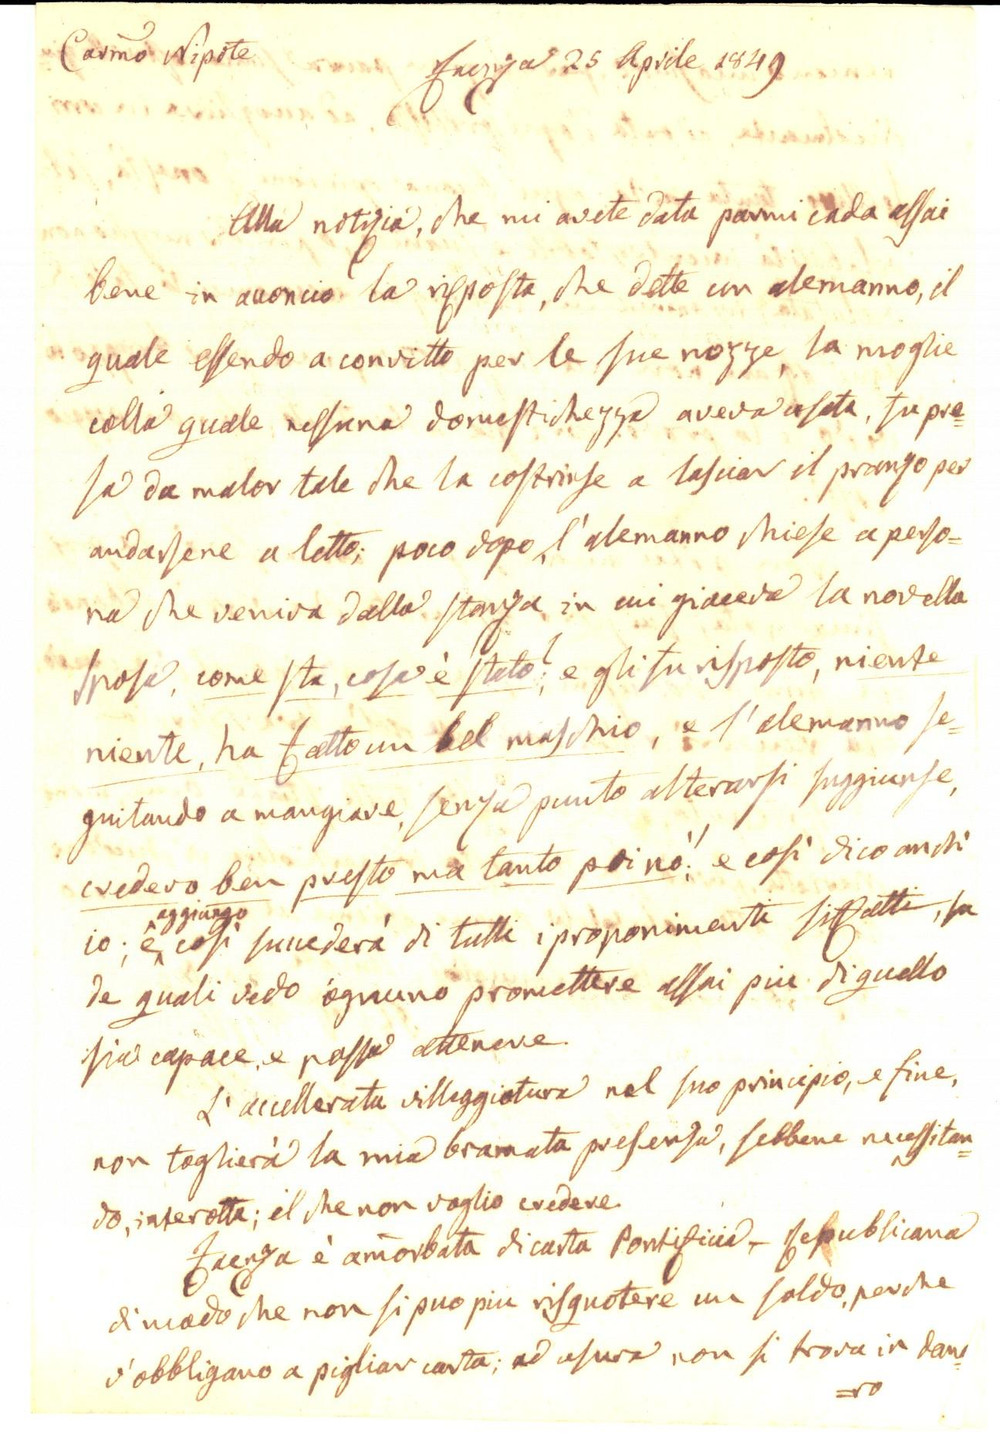 Carmo Nipote
Faenza 25 Aprile 1849
Alla notizia, che mi avete data parmi cada assai
bene in acconcio la risposta, che dette un alemanno, il
quale essendo a convitto per le sue nozze, la moglie
colla quale nessuna domestichezza aveva usata, fu pre=
sa da malor tale che la costrinse a lasciar il pranzo per
andarsene a letto; poco dopo, l'alemanno chiese a perso=
na che veniva dalla stanza in cui giaceva la novella
sposa, come sta, cosa è stato?; e gli fu risposto, niente
niente, ha fatto un bel maschio, e l'alemanno se=
guitando a mangiare, senza punto alterarsi suggiunse,
credevo ben presto ma tanto poi nò!; e così dico anch'
aggiungo
io; e così succederà di tutti i proponimenti siffatti, su
de quali vedo ognuno promettere assai piu di quello
sia capace, e possa attenere.
L'accellerata villeggiatura nel suo principio, e fine,
non toglierà la mia bramata presenza, sebbene necessitan=
do, interotta; il che non voglio credere.
Faenza è ammorbata di carta Pontificia, - Republicana
di modo che non si puo piu risquotere un soldo, perche
v'obbligano a pigliar carta; ad usura non si trova in dana=
=ro